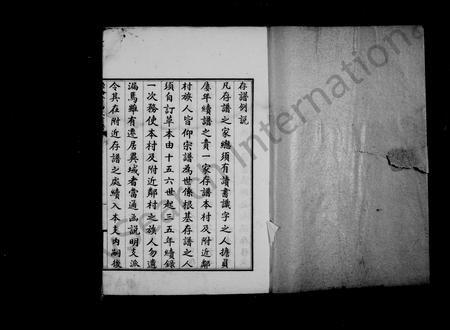 存譜例說
凡存譜之家總須有讀書識字之人擔負
應年續譜之責一家存譜本村及附近鄰
村族人皆仰宗譜為世系根基存譜之人
須自訂草本由十五六世起三五年續錄
一次務使本村及附近鄰村之族人勿遺
漏焉雖有遷居異域者當通函說明支派
令其在附近存譜之處續入本支內嗣後